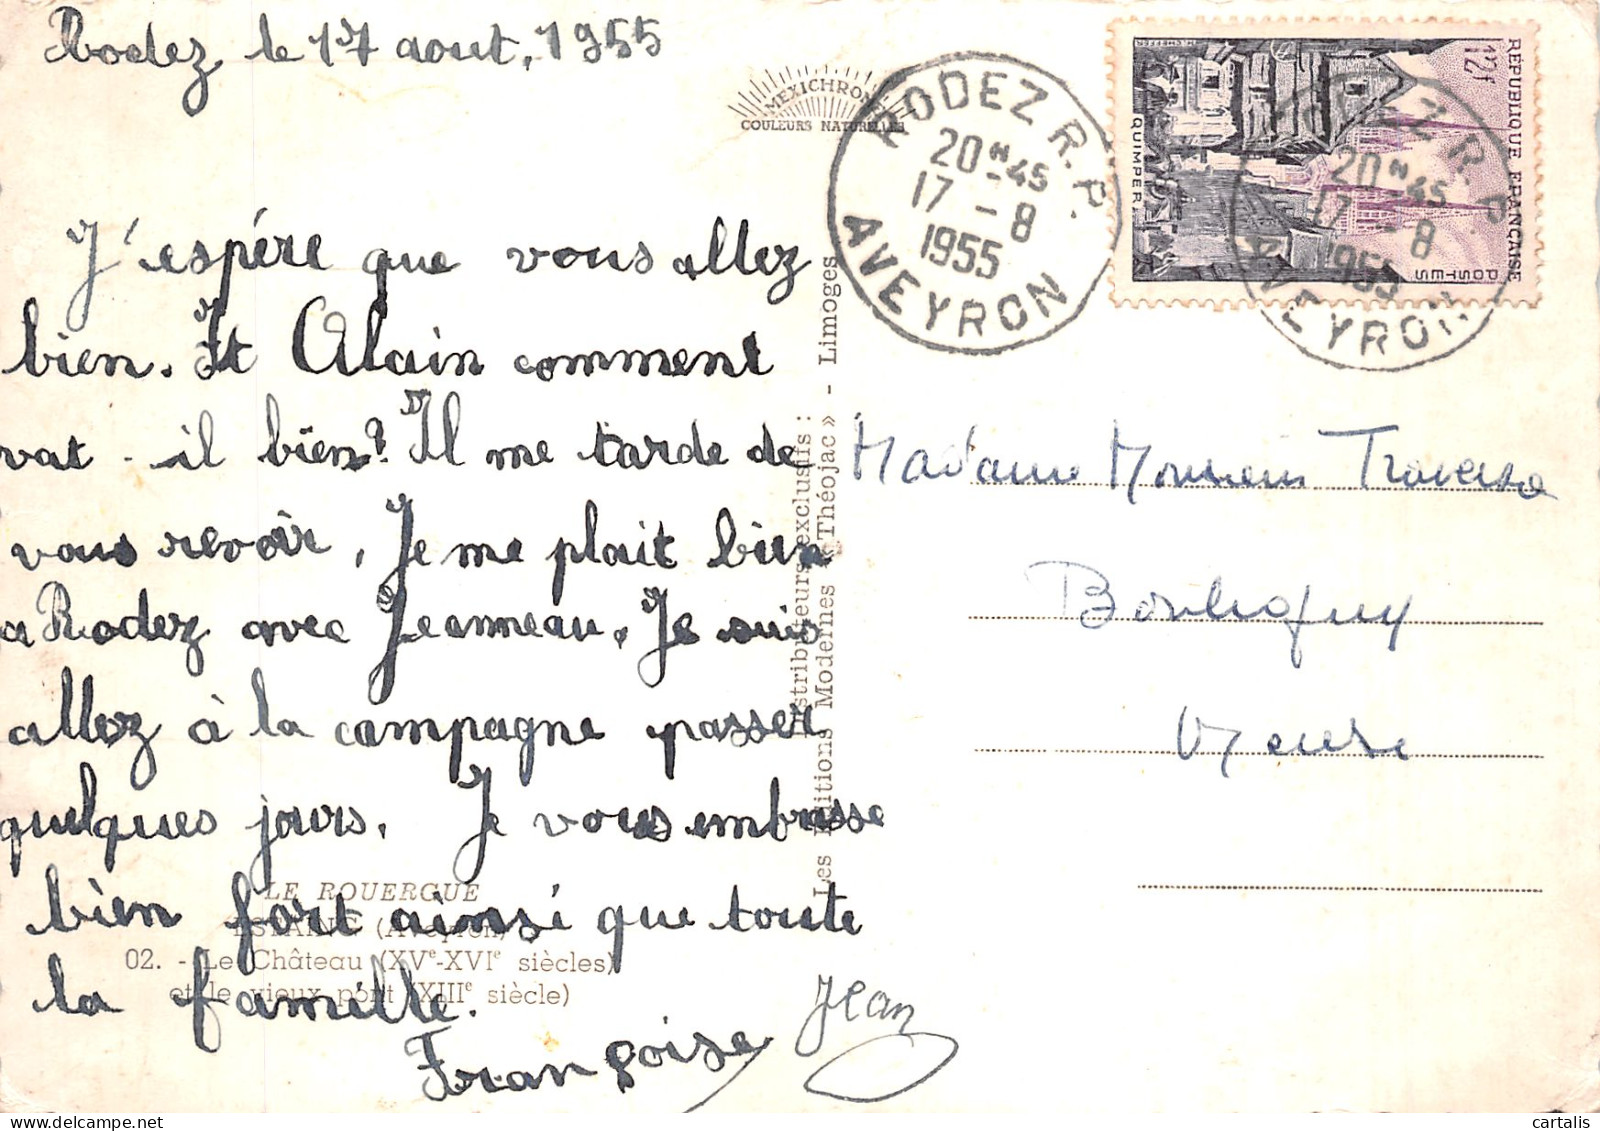 Rodez le 17 aout, 1955
J'espére que vous allez
bien. Et Alain comment
vat-il bien? Il me tarde de
vous revoir, Je me plait bien
a Rodez avec Jeanneau. Je suis
allez à la campagne passer
quelques jours. Je vous embrasse
bien fort ainsi que toute
la famille.
Françoise
Jean
LE ROUERGUE
ESTAING (Aveyron)
02. - Le Château (XVe-XVIe siècles)
et le vieux pont (XIIIe siècle)
MEXICHROME
COULEURS NATURELLES
Distributeurs exclusifs :
Les Editions Modernes « Théojac » - Limoges
RODEZ R.P.
20H45
17-8
1955
AVEYRON
RODEZ R.P.
20H45
17-8
1955
AVEYRON
12f
REPUBLIQUE FRANÇAISE
POSTES
QUIMPER
H. CHEFFER
Madame Monsieur Traverse
Bouligny
Meuse
cartalis